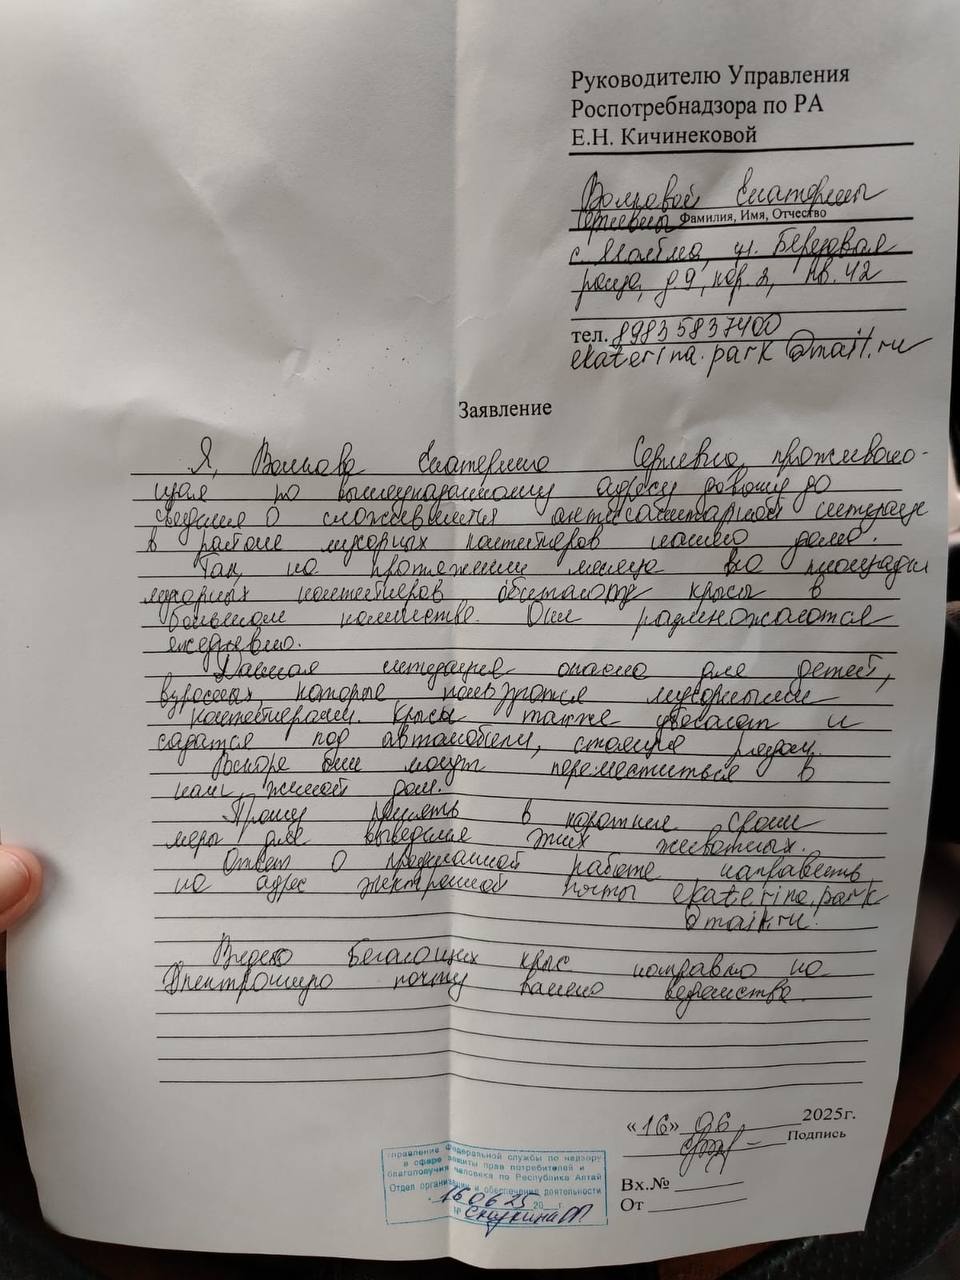 Руководителю Управления
Роспотребнадзора по РА
Е.Н. Кичинековой
Волковой Екатерины
Сергеевны Фамилия, Имя, Отчество
с. Майма, ул. Березовая
роща, д.9, кор. 2, кв. 42
тел. 89835837400
ekaterina.park@mail.ru
Заявление
Я, Волкова Екатерина Сергеевна, проживаю-
щая по вышеуказанному адресу довожу до
сведения о сложившейся антисанитарной ситуации
в районе мусорных контейнеров нашего дома.
Так, на протяжении месяца на площадки
мусорных контейнеров обитают крысы в
большом количестве. Они размножаются
ежедневно.
Данная ситуация опасна для детей,
взрослых, которые пользуются мусорными
контейнерами. Крысы также убегают и
садятся под автомобили, стоящие рядом.
Вскоре они могут переместиться в
наш жилой дом.
Прошу принять в короткие сроки
меры для выведения этих животных.
Ответ о проделанной работе направить
на адрес электронной почты ekaterina.park
@mail.ru.
Видео бегающих крыс направлю на
электронную почту вашего ведомства.
«16» 06 2025г.
Подпись
Вх.№
От
Управление Федеральной службы по надзору
в сфере защиты прав потребителей и
благополучия человека по Республике Алтай
Отдел организации и обеспечения деятельности
16 06 25 20 г.
№